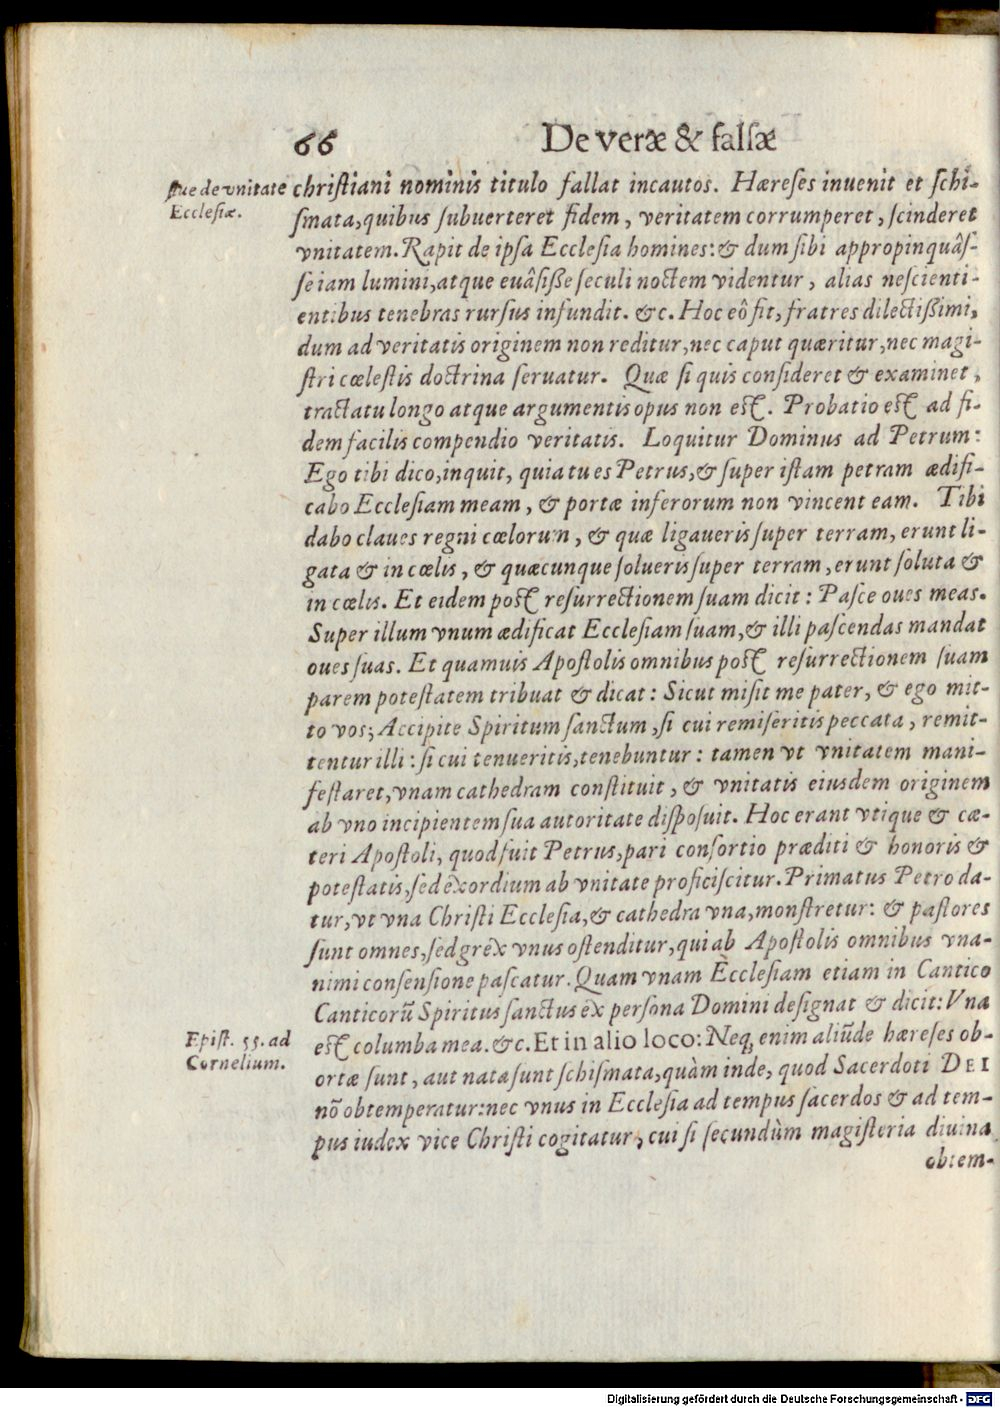 66 De veræ & falsæ
siue de vnitate Ecclesiæ.
christiani nominis titulo fallat incautos. Hæreses inuenit et schi-
smata, quibus subuerteret fidem, veritatem corrumperet, scinderet
vnitatem. Rapit de ipsa Ecclesia homines: & dum sibi appropinquâs-
se iam lumini, atque euâsisse seculi noctem videntur, alias nescienti-
entibus tenebras rursus infundit. &c. Hoc eô fit, fratres dilectissimi,
dum ad veritatis originem non reditur, nec caput quæritur, nec magi-
stri cœlestis doctrina seruatur. Quæ si quis consideret & examinet,
tractatu longo atque argumentis opus non est. Probatio est ad fi-
dem facilis compendio veritatis. Loquitur Dominus ad Petrum:
Ego tibi dico, inquit, quia tu es Petrus, & super istam petram ædifi-
cabo Ecclesiam meam, & portæ inferorum non vincent eam. Tibi
dabo claues regni cœlorum, & quæ ligaueris super terram, erunt li-
gata & in cœlis, & quæcunque solueris super terram, erunt soluta &
in cœlis. Et eidem post resurrectionem suam dicit: Pasce oues meas.
Super illum vnum ædificat Ecclesiam suam, & illi pascendas mandat
oues suas. Et quamuis Apostolis omnibus post resurrectionem suam
parem potestatem tribuat & dicat: Sicut misit me pater, & ego mit-
to vos; Accipite Spiritum sanctum, si cui remiseritis peccata, remit-
tentur illi: si cui tenueritis, tenebuntur: tamen vt vnitatem mani-
festaret, vnam cathedram constituit, & vnitatis eiusdem originem
ab vno incipientem sua autoritate disposuit. Hoc erant vtique & cæ-
teri Apostoli, quod fuit Petrus, pari consortio præditi & honoris &
potestatis, sed exordium ab vnitate proficiscitur. Primatus Petro da-
tur, vt vna Christi Ecclesia, & cathedra vna, monstretur: & pastores
sunt omnes, sed grex vnus ostenditur, qui ab Apostolis omnibus vna-
nimi consensione pascatur. Quam vnam Ecclesiam etiam in Cantico
Canticorũ Spiritus sanctus ex persona Domini designat & dicit: Vna
est columba mea. &c. Et in alio loco: Neq; enim aliũde hæreses ob-
Epist. 55. ad Cornelium.
ortæ sunt, aut nata sunt schismata, quàm inde, quod Sacerdoti DEI
nõ obtemperatur: nec vnus in Ecclesia ad tempus sacerdos & ad tem-
pus iudex vice Christi cogitatur, cui si secundùm magisteria diuina
obtem-
Digitalisierung gefördert durch die Deutsche Forschungsgemeinschaft - DFG